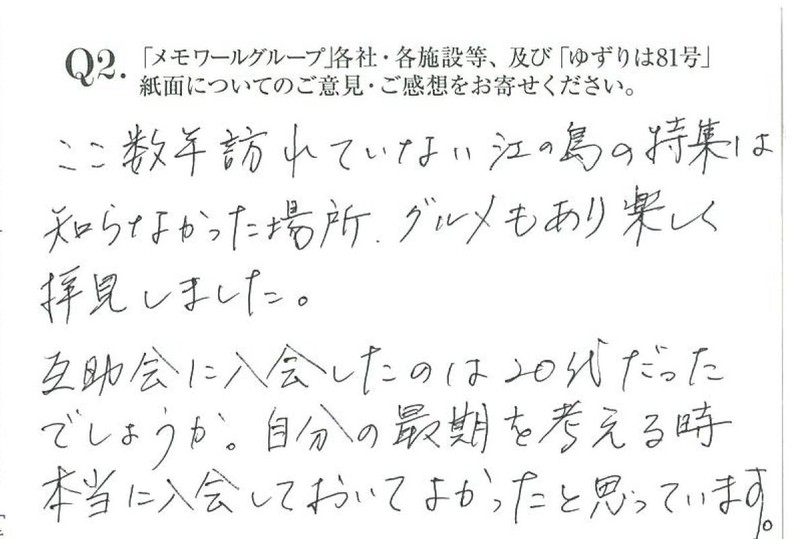 Q2. 「メモワールグループ」各社・各施設等、及び「ゆずりは81号」
紙面についてのご意見・ご感想をお寄せください。
ここ数年訪れていない江の島の特集は
知らなかった場所、グルメもあり楽しく
拝見しました。
互助会に入会したのは20代だった
でしょうか。自分の最期を考える時
本当に入会しておいてよかったと思っています。